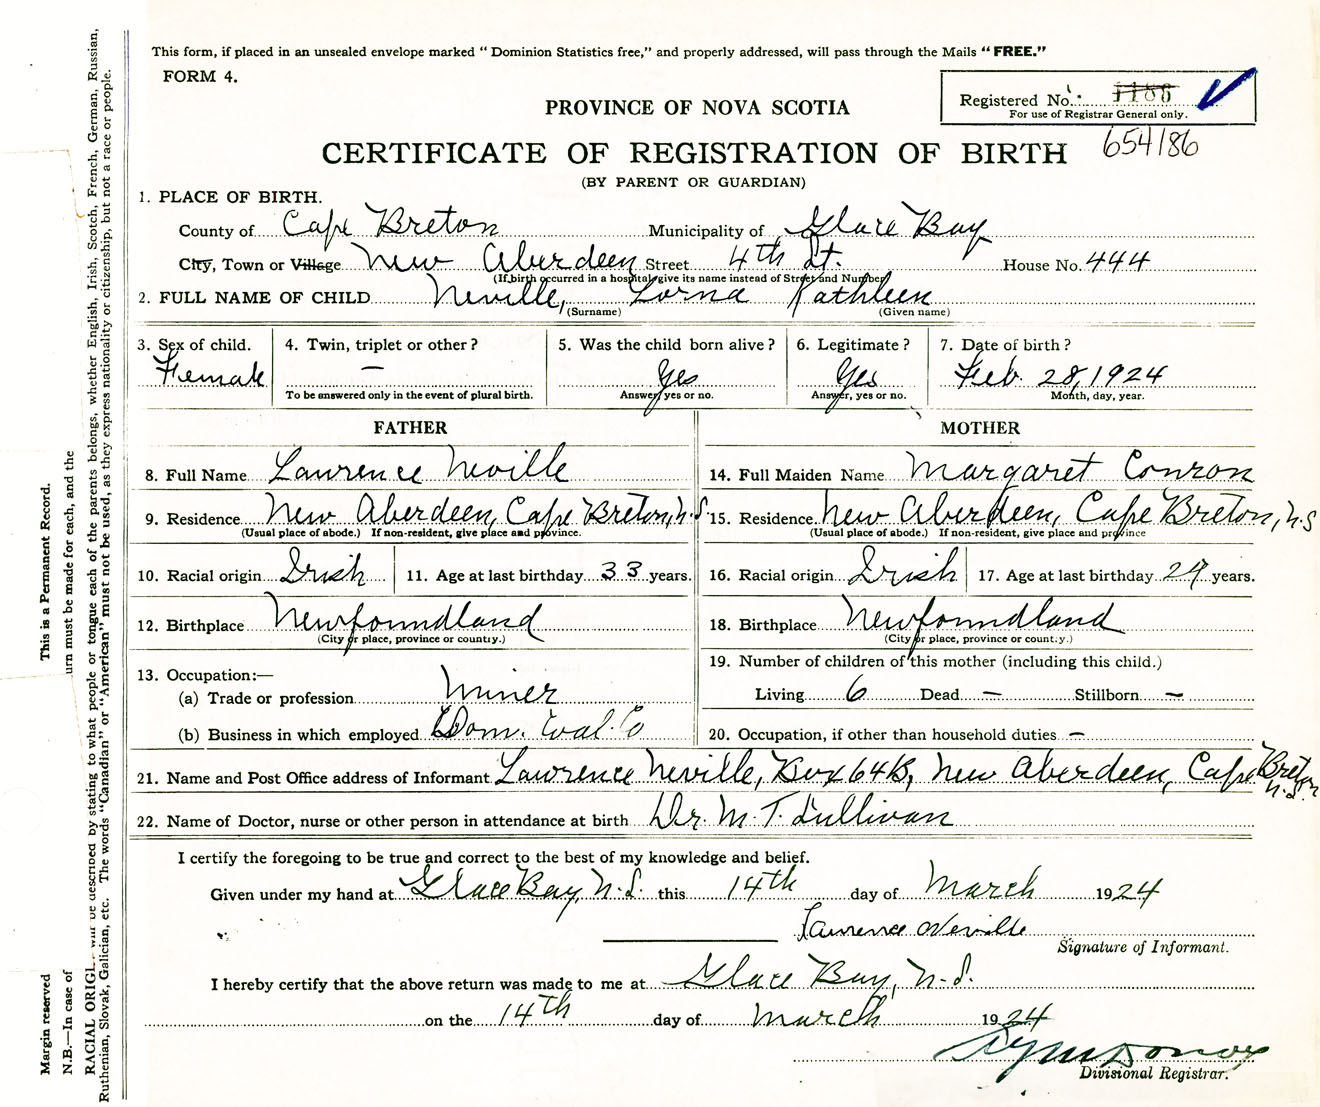 This form, if placed in an unsealed envelope marked “ Dominion Statistics free,” and properly addressed, will pass through the Mails “ FREE.”
FORM 4.
Registered No. 1186
For use of Registrar General only.
654186
PROVINCE OF NOVA SCOTIA
CERTIFICATE OF REGISTRATION OF BIRTH
(BY PARENT OR GUARDIAN)
1. PLACE OF BIRTH.
County of Cape Breton Municipality of Glace Bay
City, Town or Village New Aberdeen Street 4th St. House No. 444
(If birth occurred in a hospital give its name instead of Street and Number)
2. FULL NAME OF CHILD Neville, Lorna Kathleen
(Surname) (Given name)
3. Sex of child. 4. Twin, triplet or other ? 5. Was the child born alive ? 6. Legitimate ? 7. Date of birth ?
Female — Yes Yes Feb. 28, 1924
To be answered only in the event of plural birth. Answer, yes or no. Answer, yes or no. Month, day, year.
FATHER MOTHER
8. Full Name Lawrence Neville 14. Full Maiden Name Margaret Conron
9. Residence New Aberdeen, Cape Breton, N.S. 15. Residence New Aberdeen, Cape Breton, N.S
(Usual place of abode.) If non-resident, give place and province. (Usual place of abode.) If non-resident, give place and province
10. Racial origin Irish 11. Age at last birthday 33 years. 16. Racial origin Irish 17. Age at last birthday years.
12. Birthplace Newfoundland 18. Birthplace Newfoundland
(City or place, province or country.) (City or place, province or country.)
13. Occupation:— 19. Number of children of this mother (including this child.)
(a) Trade or profession Miner Living 6 Dead — Stillborn —
(b) Business in which employed Dom. Coal Co 20. Occupation, if other than household duties —
21. Name and Post Office address of Informant Lawrence Neville, Box 64B, New Aberdeen, Cape Breton N.S.
22. Name of Doctor, nurse or other person in attendance at birth Dr. M. T. Sullivan
I certify the foregoing to be true and correct to the best of my knowledge and belief.
Given under my hand at Glace Bay, N.S. this 14th day of March 1924
Lawrence Neville
Signature of Informant.
I hereby certify that the above return was made to me at Glace Bay, N.S.
on the 14th day of March 1924
Divisional Registrar.
Margin reserved This is a Permanent Record.
N.B.—In case of urn must be made for each, and the
RACIAL ORIGI will be described by stating to what people or tongue each of the parents belongs, whether English, Irish, Scotch, French, German, Russian,
Ruthenian, Slovak, Galician, etc. The words “Canadian” or “American” must not be used, as they express nationality or citizenship, but not a race or people.